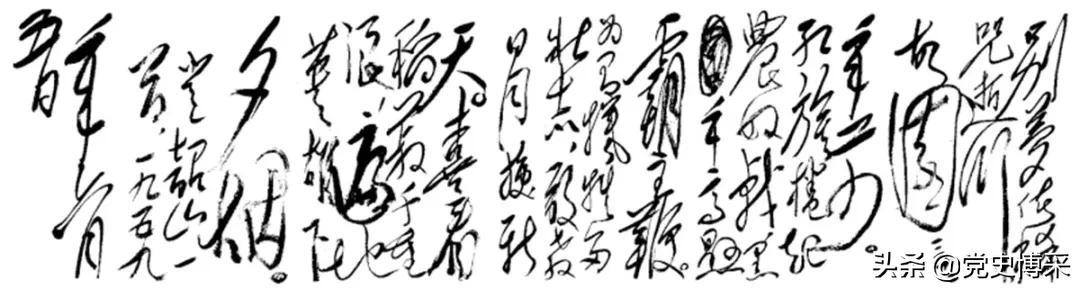 别梦依稀
咒逝川
故园三
十二年前。
红旗捲起
農奴戟黑
手高悬
霸主鞭。
为有犠牲多
壮志敢教
日月换新
天。喜看
稻菽千重
浪遍地
英雄下
夕烟。
登韶山一
首,一九五九
年六月
头条 @党史博采